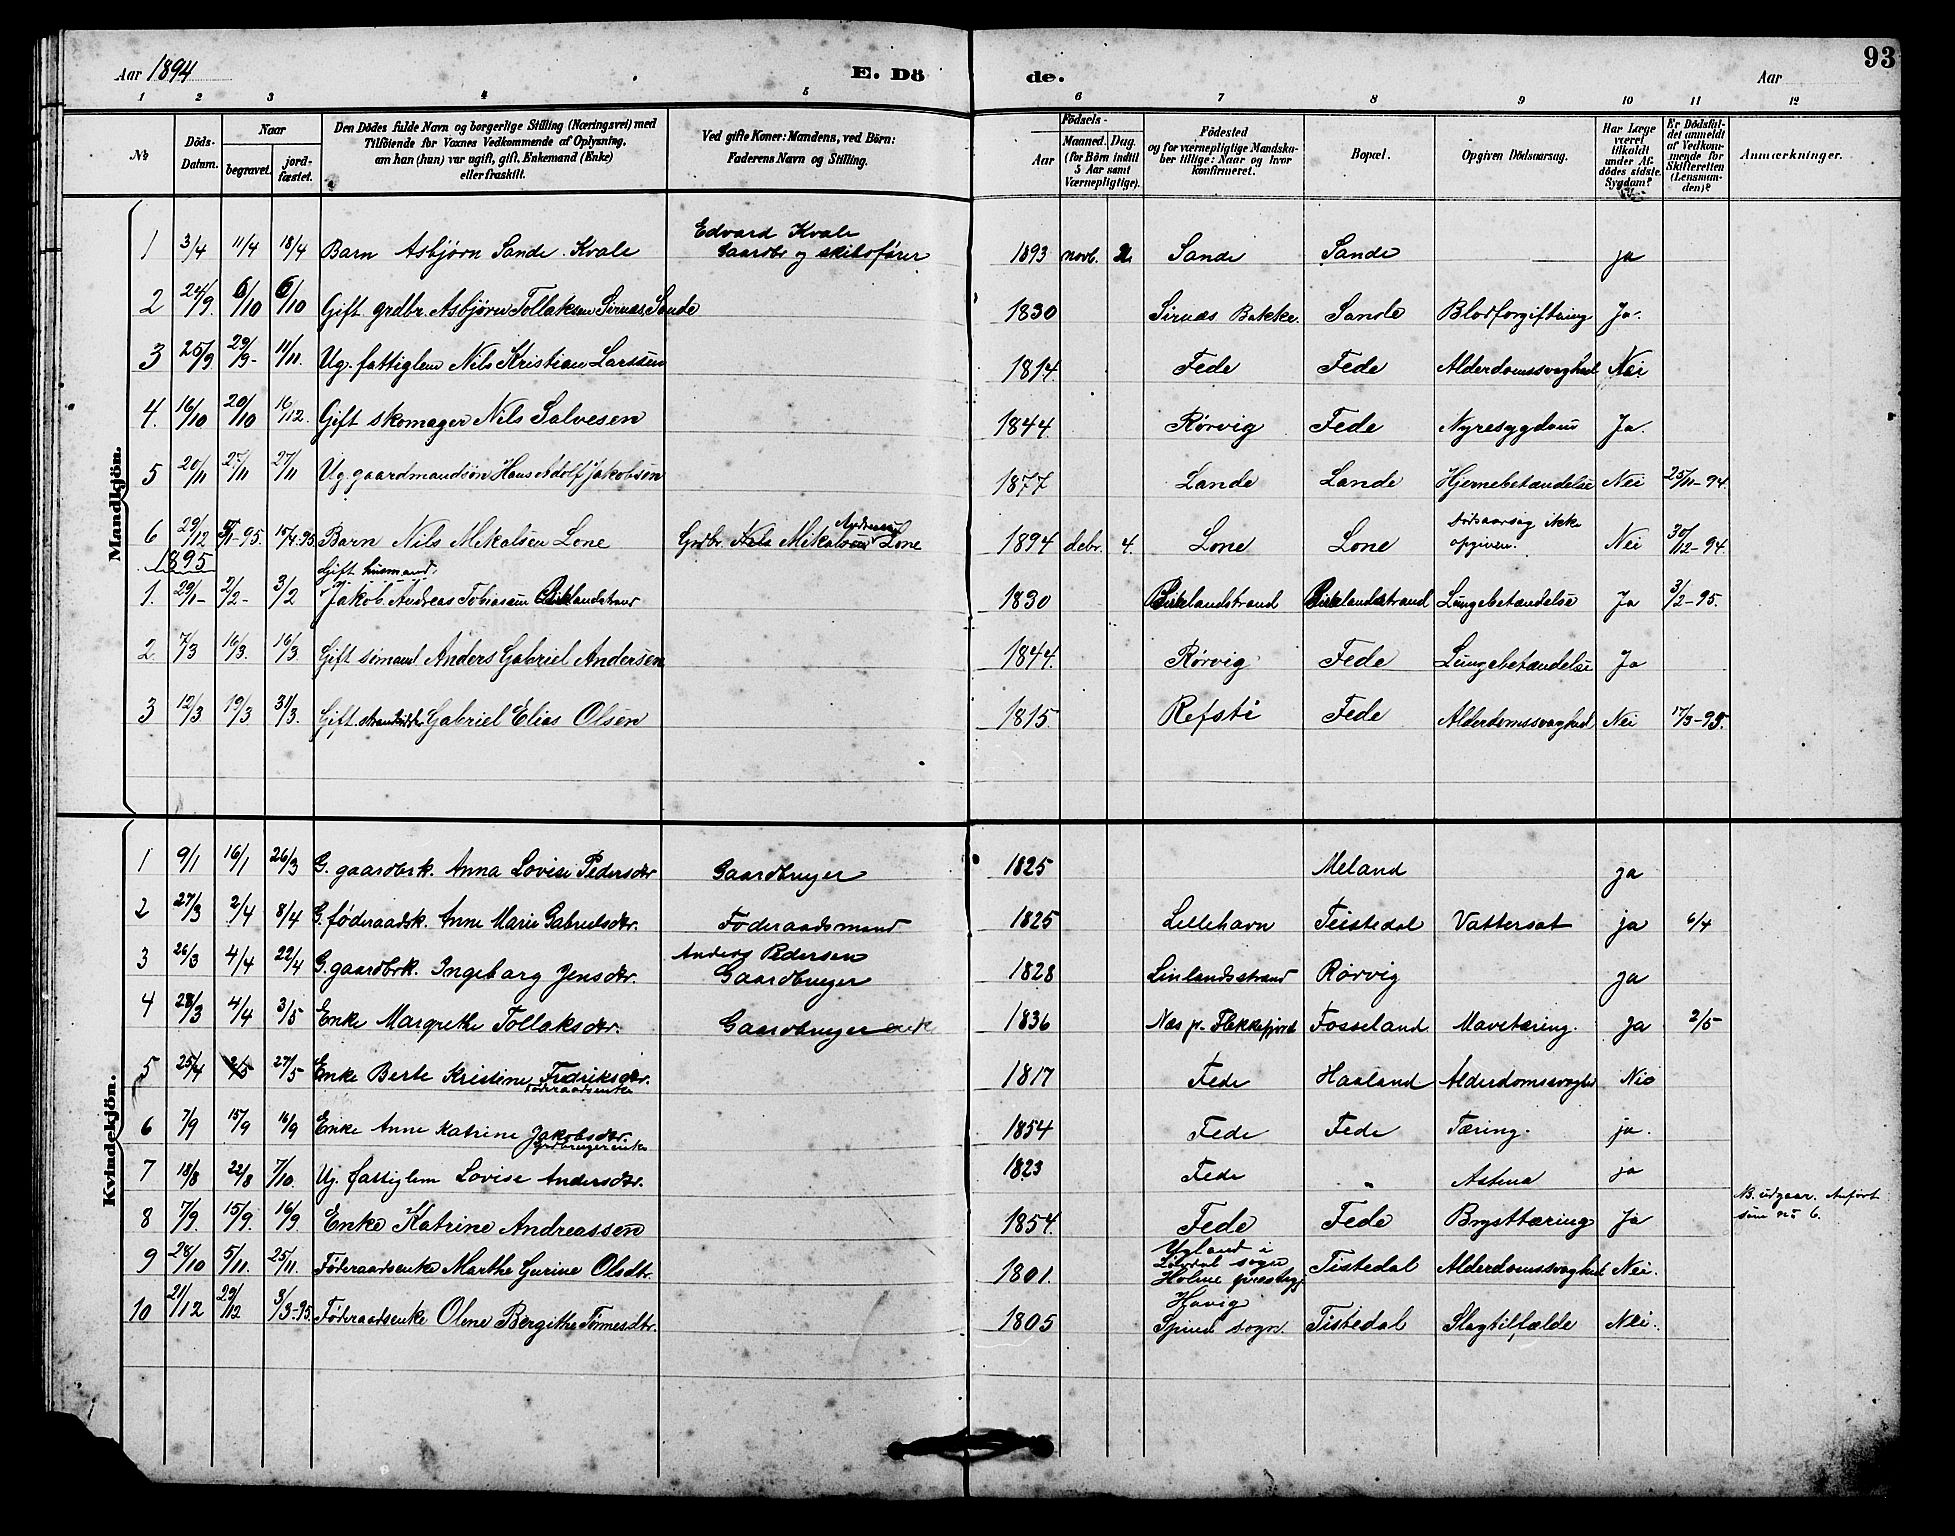 93
Aar 1894
E. Döde.
Aar
1 2 3 4 5 6 7 8 9 10 11 12
No
Döds-Datum.
Naar
begravet.
jord-fæstet.
Den Dödes fulde Navn og borgerlige Stilling (Næringsvei) med
Tilföiende for Voxnes Vedkommende af Oplysning,
om han (hun) var ugift, gift, Enkemand (Enke)
eller fraskilt.
Ved gifte Koner: Mandens, ved Börn:
Faderens Navn og Stilling.
Födsels-
Aar
Maaned. Dag.
(for Börn indtil
5 Aar samt
Værnepligtige).
Födested
og for værnepligtige Mandska-
ber tillige: Naar og hvor
konfirmeret.
Bopæl.
Opgiven Dödsaarsag.
Har Læge
været
tilkaldt
under Af-
dödes sidste
Sygdom?
Er Dödsfal-
det anmeldt
af Vedkom-
mende for
Skifteretten
(Lensman-
den)?
Anmærkninger.
Mandkjön.
1 3/4 11/4 18/4 Barn Asbjørn Sande Kvale Edvard Kvale Gaardbr og skibsfører 1893 novb. 2 Sande Sande ja
2 24/9. 6/10 6/10 Gift grdbr. Asbjørn Tollaksen Sirnæs, Sande 1830 Sirnæs Bakke. Sande Blodforgiftning Ja.
3 25/9 29/9- 11/11. Ug. fattiglem Nils Kristian Larssen 1814. Fede Fede Alderdomssvaghed Nei
4. 16/10 20/10 16/12. Gift skomager Nils Salvesen 1844. Rørvig Fede Nyresygdom Ja.
5 20/11 27/11 27/11 Ug. gaardmandsøn Hans Adolf Jakobsen 1877 Lande Lande Hjernebetændelse Nei 25/11-94.
6 29/12 5/1-95. 15/4.95 Barn Nils Mikalsen Lone Grdbr. Nils Mikalsen Andreas Lone 1894 debr. 4. Lone Lone Dødsaarsag ikke opgiven. Nei 30/12-94.
1895
1. 29/1- 2/2- 3/2 Gift husmand. Jakob Andreas Tobiasen Birklandstrand 1830 Birklandstrand Birklandstrand Lungebetændelse Ja 3/2-95.
2 7/3 16/3. 16/3. Gift sømand Anders Gabriel Andersen 1844. Rørvig Fede Lungebetændelse Ja
3 12/3 19/3 31/3. Gift Gabriel Elias Olsen 1815. Refsti Fede Alderdomssvaghed Nei 17/3-95.
Kvindekjön.
1 9/1 16/1 26/3 G. gaardbrk. Anna Lovise Pedersdtr Gaardbruger 1825 Meland ja
2 27/3 2/4 8/4 G. føderaadsk. Anne Marie Gabrielsdtr. Føderaadsmand 1825 Lillehavn Teistedal Vattersot ja 6/4
3 26/3 4/4 22/4 G. gaardbrk. Ingeborg Jensdtr. Anders Pedersen Gaardbruger 1828 Linlandsstrand Rørvig ja
4 28/3 4/4 3/5 Enke Margrethe Tollaksdtr. Gaardbruger enke 1836 Næs pr. Flekkefjord Fosseland Mavetæring. ja 2/5
5 25/4 2/5 27/5 Enke Berte Kristine Fredriksdtr. føderaadsenke 1817 Fede Haaland Alderdomssvaghed Nei
6 7/9 15/9 16/9 Enke Anne Katrine Jakobsdtr. grdbrugerenke 1854 Fede Fede Tæring. ja.
7 18/8 22/8 7/10. Ug. fattiglem Lovise Andersdtr. 1823 Fede " Astma ja
8 7/9. 15/9. 16/9. Enke Katrine Andreassen 1854. Fede Fede Brysttæring Ja NB. udgaar. Anført som no 6.
9 28/10 5/11. 25/11. Føderaadsenke Marthe Gurine Olsdtr. 1801. Ugland i sogn Holme præstegj. Tistedal Alderdomssvaghed Nei.
10 21/12 29/12 3/3-95. Føderaadsenke Olene Bergithe Tønnesdtr. 1805 Havig Spind sogn. Tistedal Slagtilfælde Nei.